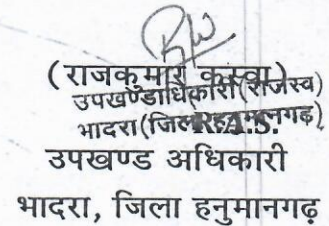 (राजकुमार कस्वा)
उपखण्डाधिकारी (राजस्व)
भादरा (जिला हनुमानगढ़)
R.A.S.
उपखण्ड अधिकारी
भादरा, जिला हनुमानगढ़